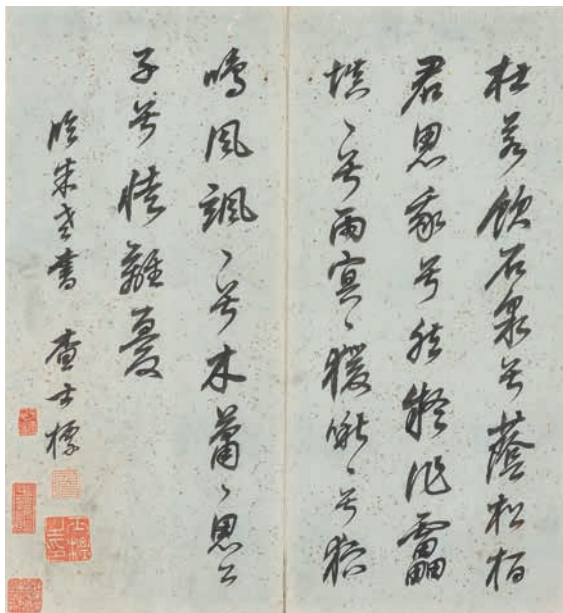 杜若飲石泉兮蔭松柏
君思我兮然疑作靁
填〻兮雨冥〻猨啾〻兮狖
鳴風颯〻兮木蕭〻思公
子兮徒離憂
臨老書 查士標